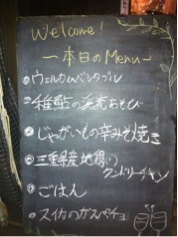 Welcome!
〜本日のMenu〜
ウェルカムベジタブル
稚鮎の
じゃがいもの辛みそ焼き
三重県産地鶏の
タンドリーチキン
ごはん
スイカのガスパチョ